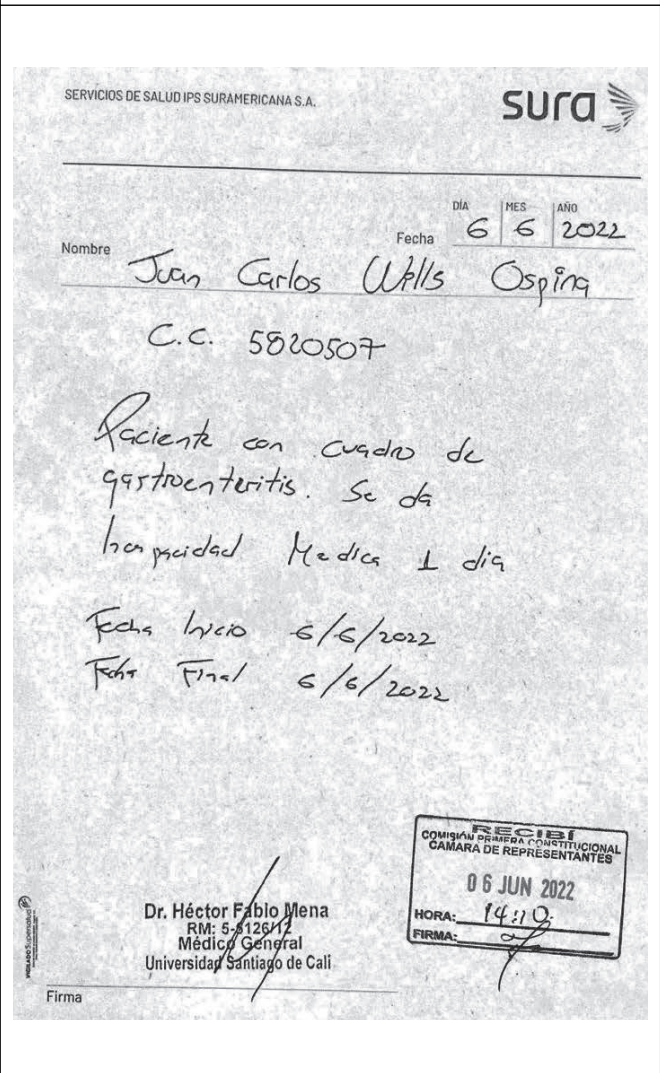 SERVICIOS DE SALUD IPS SURAMERICANA S.A.
sura
DÍA MES AÑO
Fecha 6 6 2022
Nombre Juan Carlos Wills Ospina
C.C. 5820507
Paciente con cuadro de
gastroenteritis. Se da
Incapacidad Medica 1 dia
Fecha Inicio 6/6/2022
Fecha Final 6/6/2022
RECIBÍ
COMISIÓN PRIMERA CONSTITUCIONAL
CAMARA DE REPRESENTANTES
06 JUN 2022
HORA: 14:10
FIRMA:
Dr. Héctor Fabio Mena
RM:
Médico General
Universidad Santiago de Cali
Firma
VIGILADO Supersalud